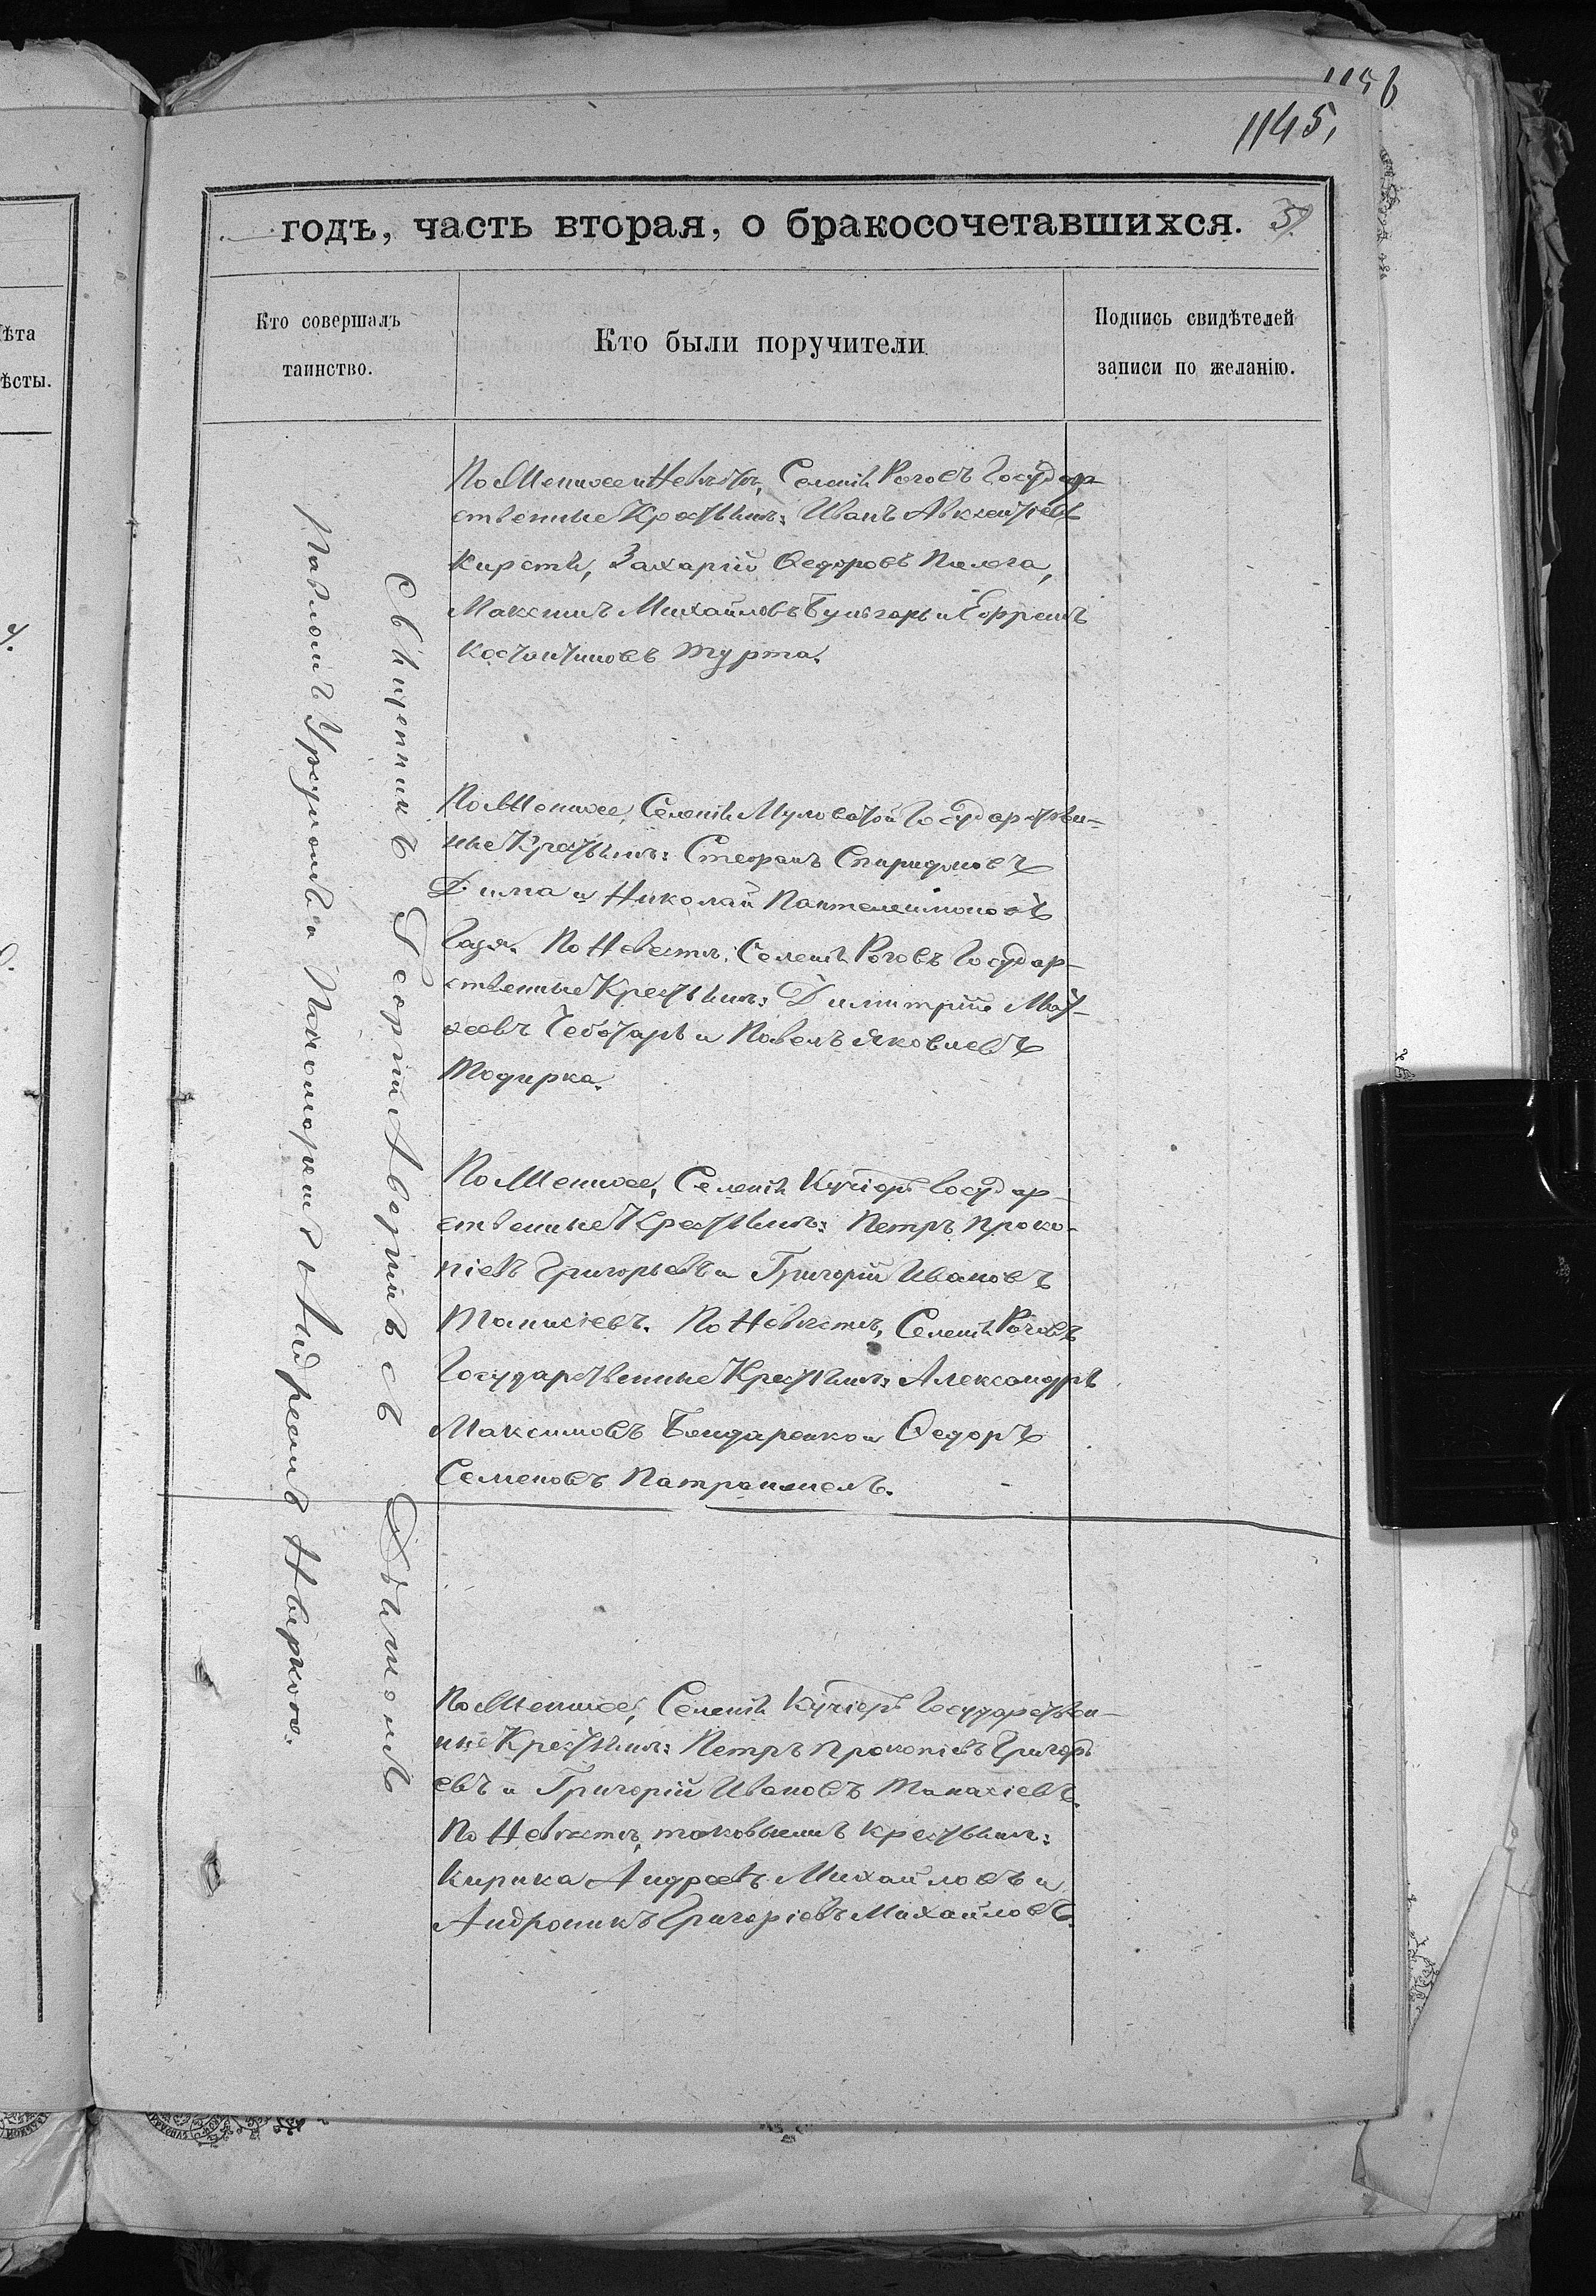 1156
1145,
годъ, часть вторая, о бракосочетавшихся. 39
ѣта
ѣсты.
Кто совершалъ
таинство.
Кто были поручители
Подпись свидѣтелей
записи по желанію.
Священникъ Георгій Аворникъ съ Дьякомъ
Павломъ и Пономаремъ Андреемъ
По Женихѣ и Невѣстѣ, Селенія Роговъ Государ-
ственные Крестьяне: Иванъ Авксентіевъ
Кирста, Захарій Ѳедоровъ Палога,
Максимъ Михайловъ Бульгаръ и Ефремъ
Костантиновъ Турта.
По Женихѣ, Селенія Муловатой Государствен-
ные Крестьяне: Стефанъ Спиридоновъ
Дима и Николай Пантелеимоновъ
Газя. По Невестѣ, Селенія Роговъ Государ-
ственные Крестьяне: Димитрій Мат-
ѳеевъ Чеботарь и Павелъ Яковлевъ
Тодирка.
По Женихѣ, Селенія Кучіеръ Государ-
ственные Крестьяне: Петръ Проко-
піевъ Григорьевъ и Григорій Ивановъ
Танасіевъ. По Невѣстѣ, Селенія Роговъ
Государственные Крестьяне: Александръ
Максимовъ Бондаренко и Ѳедоръ
Семеновъ Патраманъ.
По Женихѣ, Селенія Кучіеръ Государствен-
ные Крестьяне: Петръ Прокопіевъ Григорь
евъ и Григорій Ивановъ Танасіевъ.
По Невѣстѣ, таковыежъ крестьяне:
Кирика Андреевъ Михайловъ и
Андроникъ Григоріевъ Михайловъ.